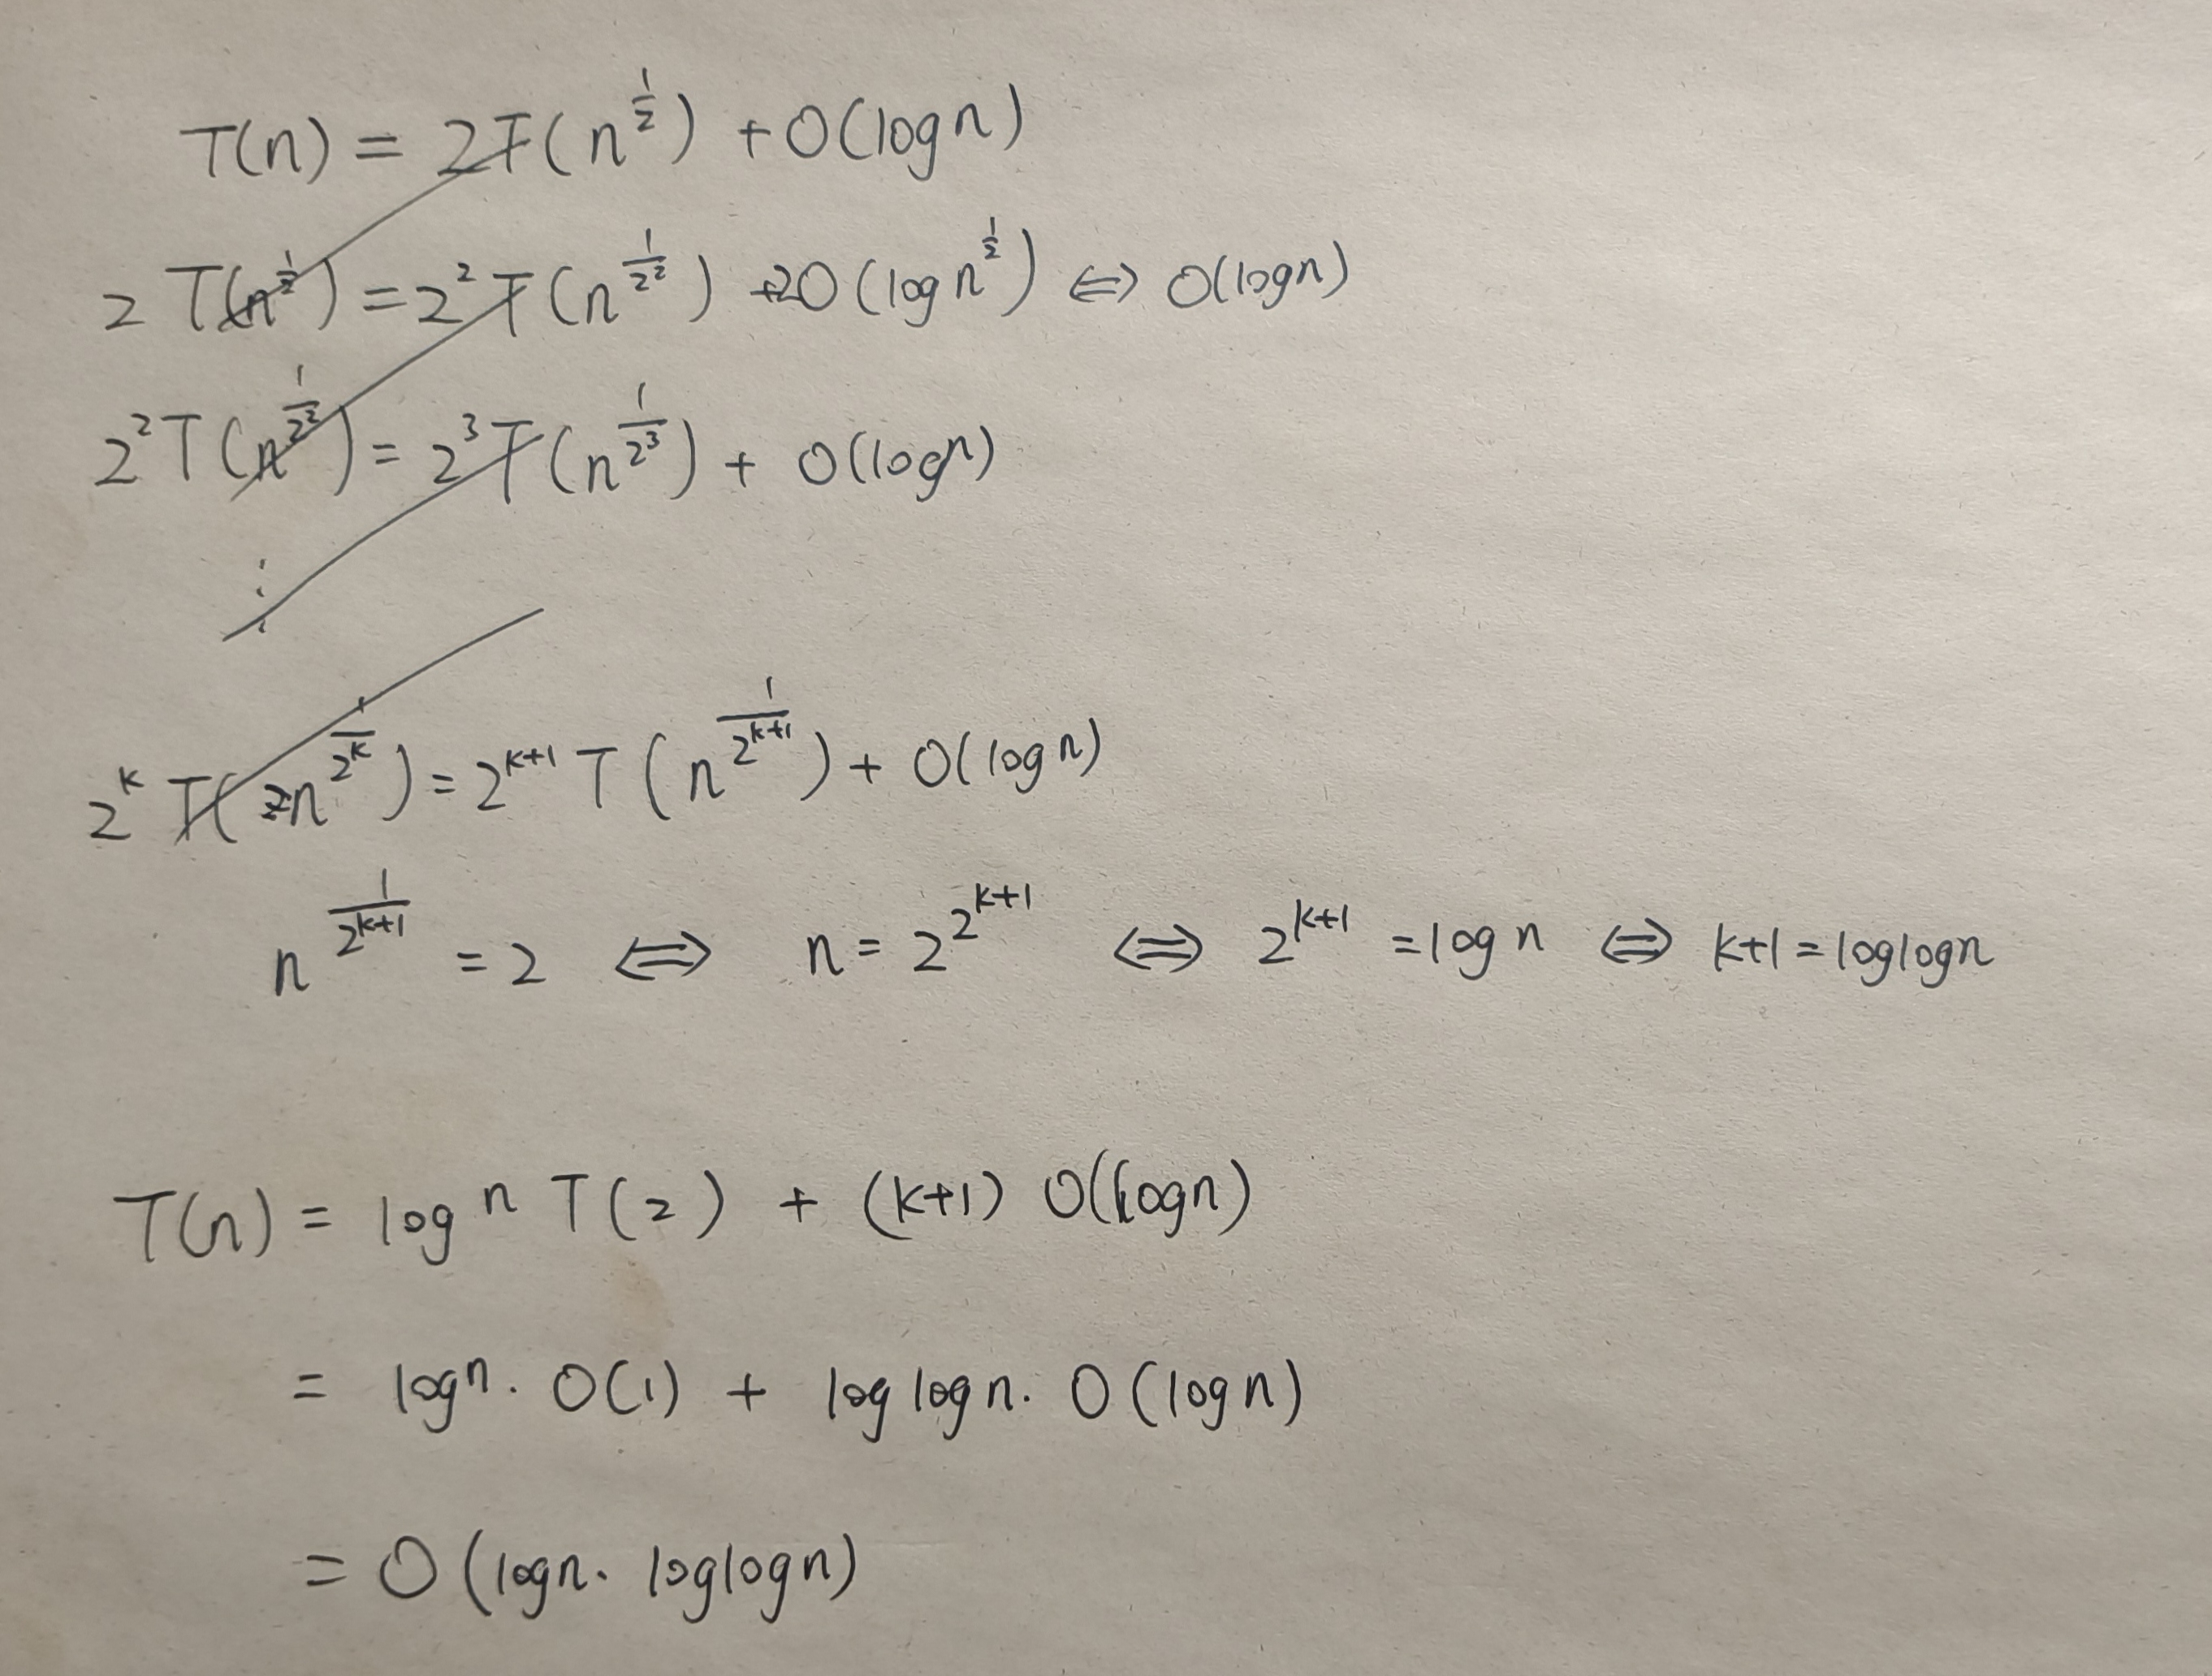 T(n) = 2T(n^{\frac{1}{2}}) + O(log n)
2 T(n^{\frac{1}{2}}) = 2^2 T(n^{\frac{1}{2^2}}) + 2O(log n^{\frac{1}{2}}) ⇔ O(log n)
2^2 T(n^{\frac{1}{2^2}}) = 2^3 T(n^{\frac{1}{2^3}}) + O(log n)
⋮
2^k T(n^{\frac{1}{2^k}}) = 2^{k+1} T(n^{\frac{1}{2^{k+1}}}) + O(log n)
n^{\frac{1}{2^{k+1}}} = 2 ⇔ n = 2^{2^{k+1}} ⇔ 2^{k+1} = log n ⇔ k+1 = loglog n
T(n) = log n T(2) + (k+1) O(log n)
= log n · O(1) + log log n · O(log n)
= O(log n · loglog n)